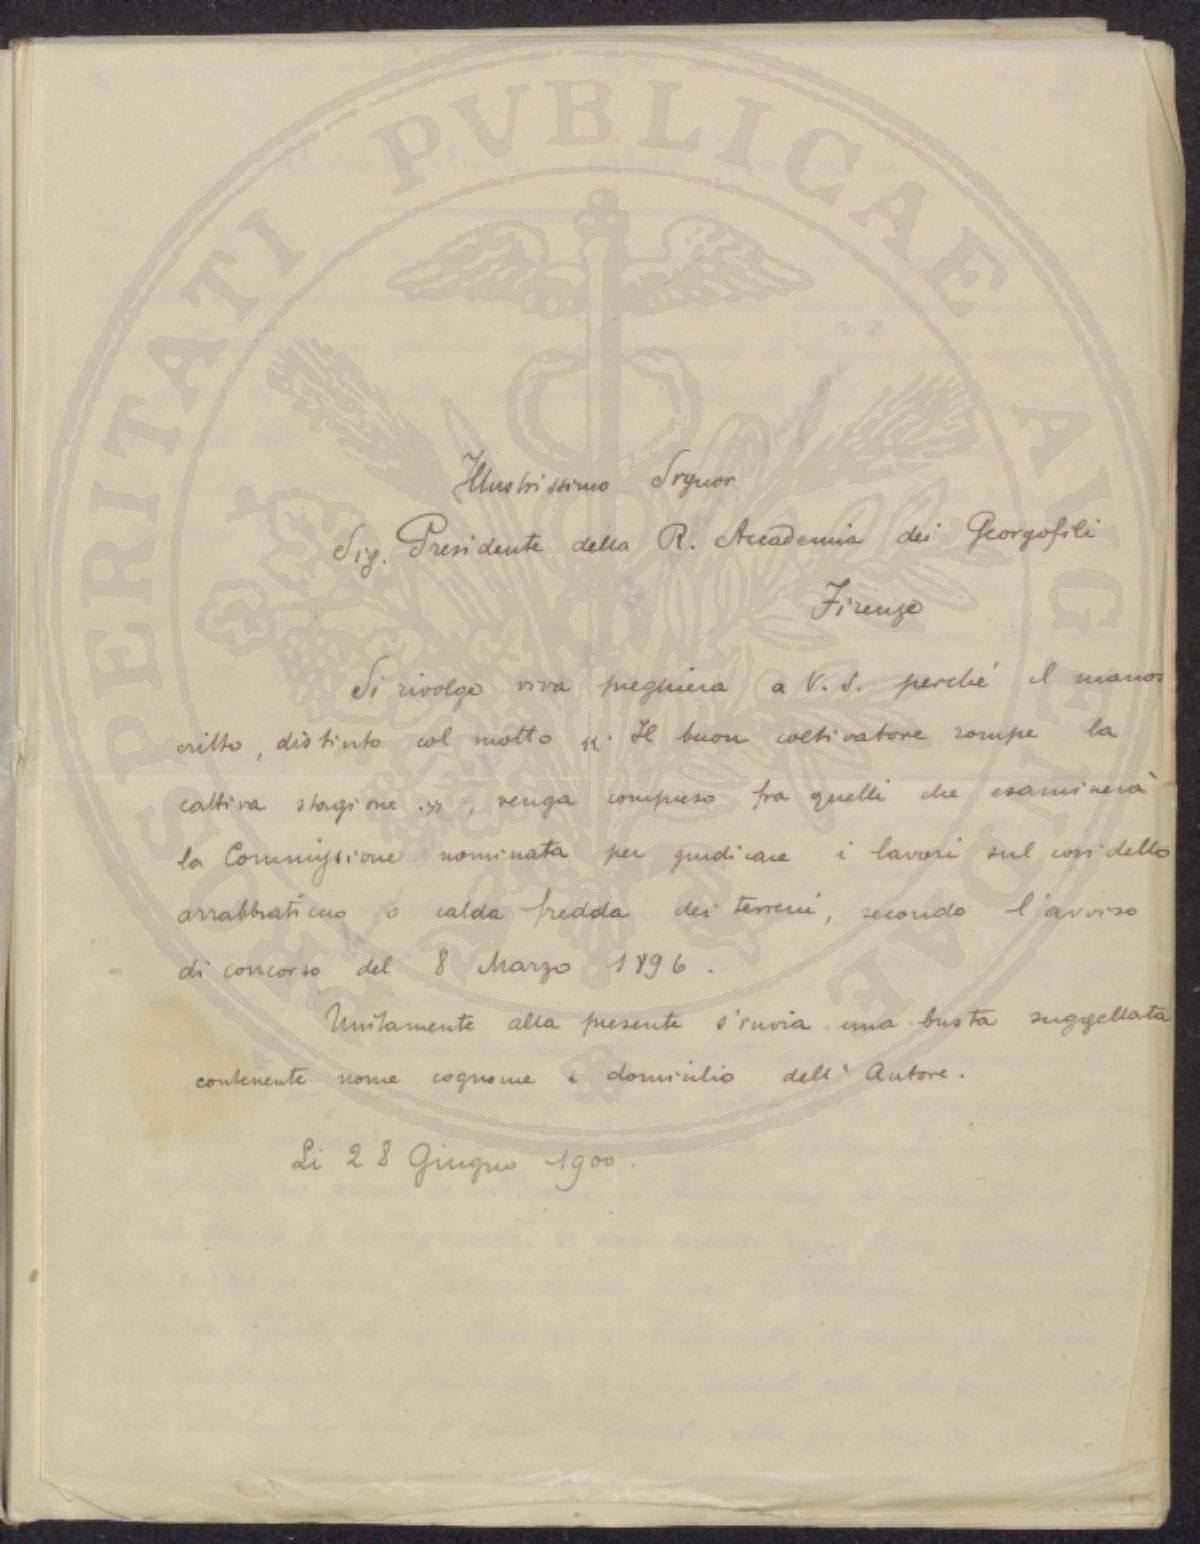 PROSPERITATI PVBLICAE AVGENDAE
Illustrissimo Signor
Sig. Presidente della R. Accademia dei Georgofili
Firenze
Si rivolge viva preghiera a V. S. perché il manos
critto, distinto col motto «. Il buon coltivatore rompe la
cattiva stagione .», venga compreso fra quelli che esaminerà
la Commissione nominata per giudicare i lavori sul così detto
arrabbaticcio o calda fredda dei terreni, secondo l'avviso
di concorso del 8 Marzo 1896.
Unitamente alla presente s'invia una busta suggellata
contenente nome cognome e domicilio dell'Autore.
Li 28 Giugno 1900.